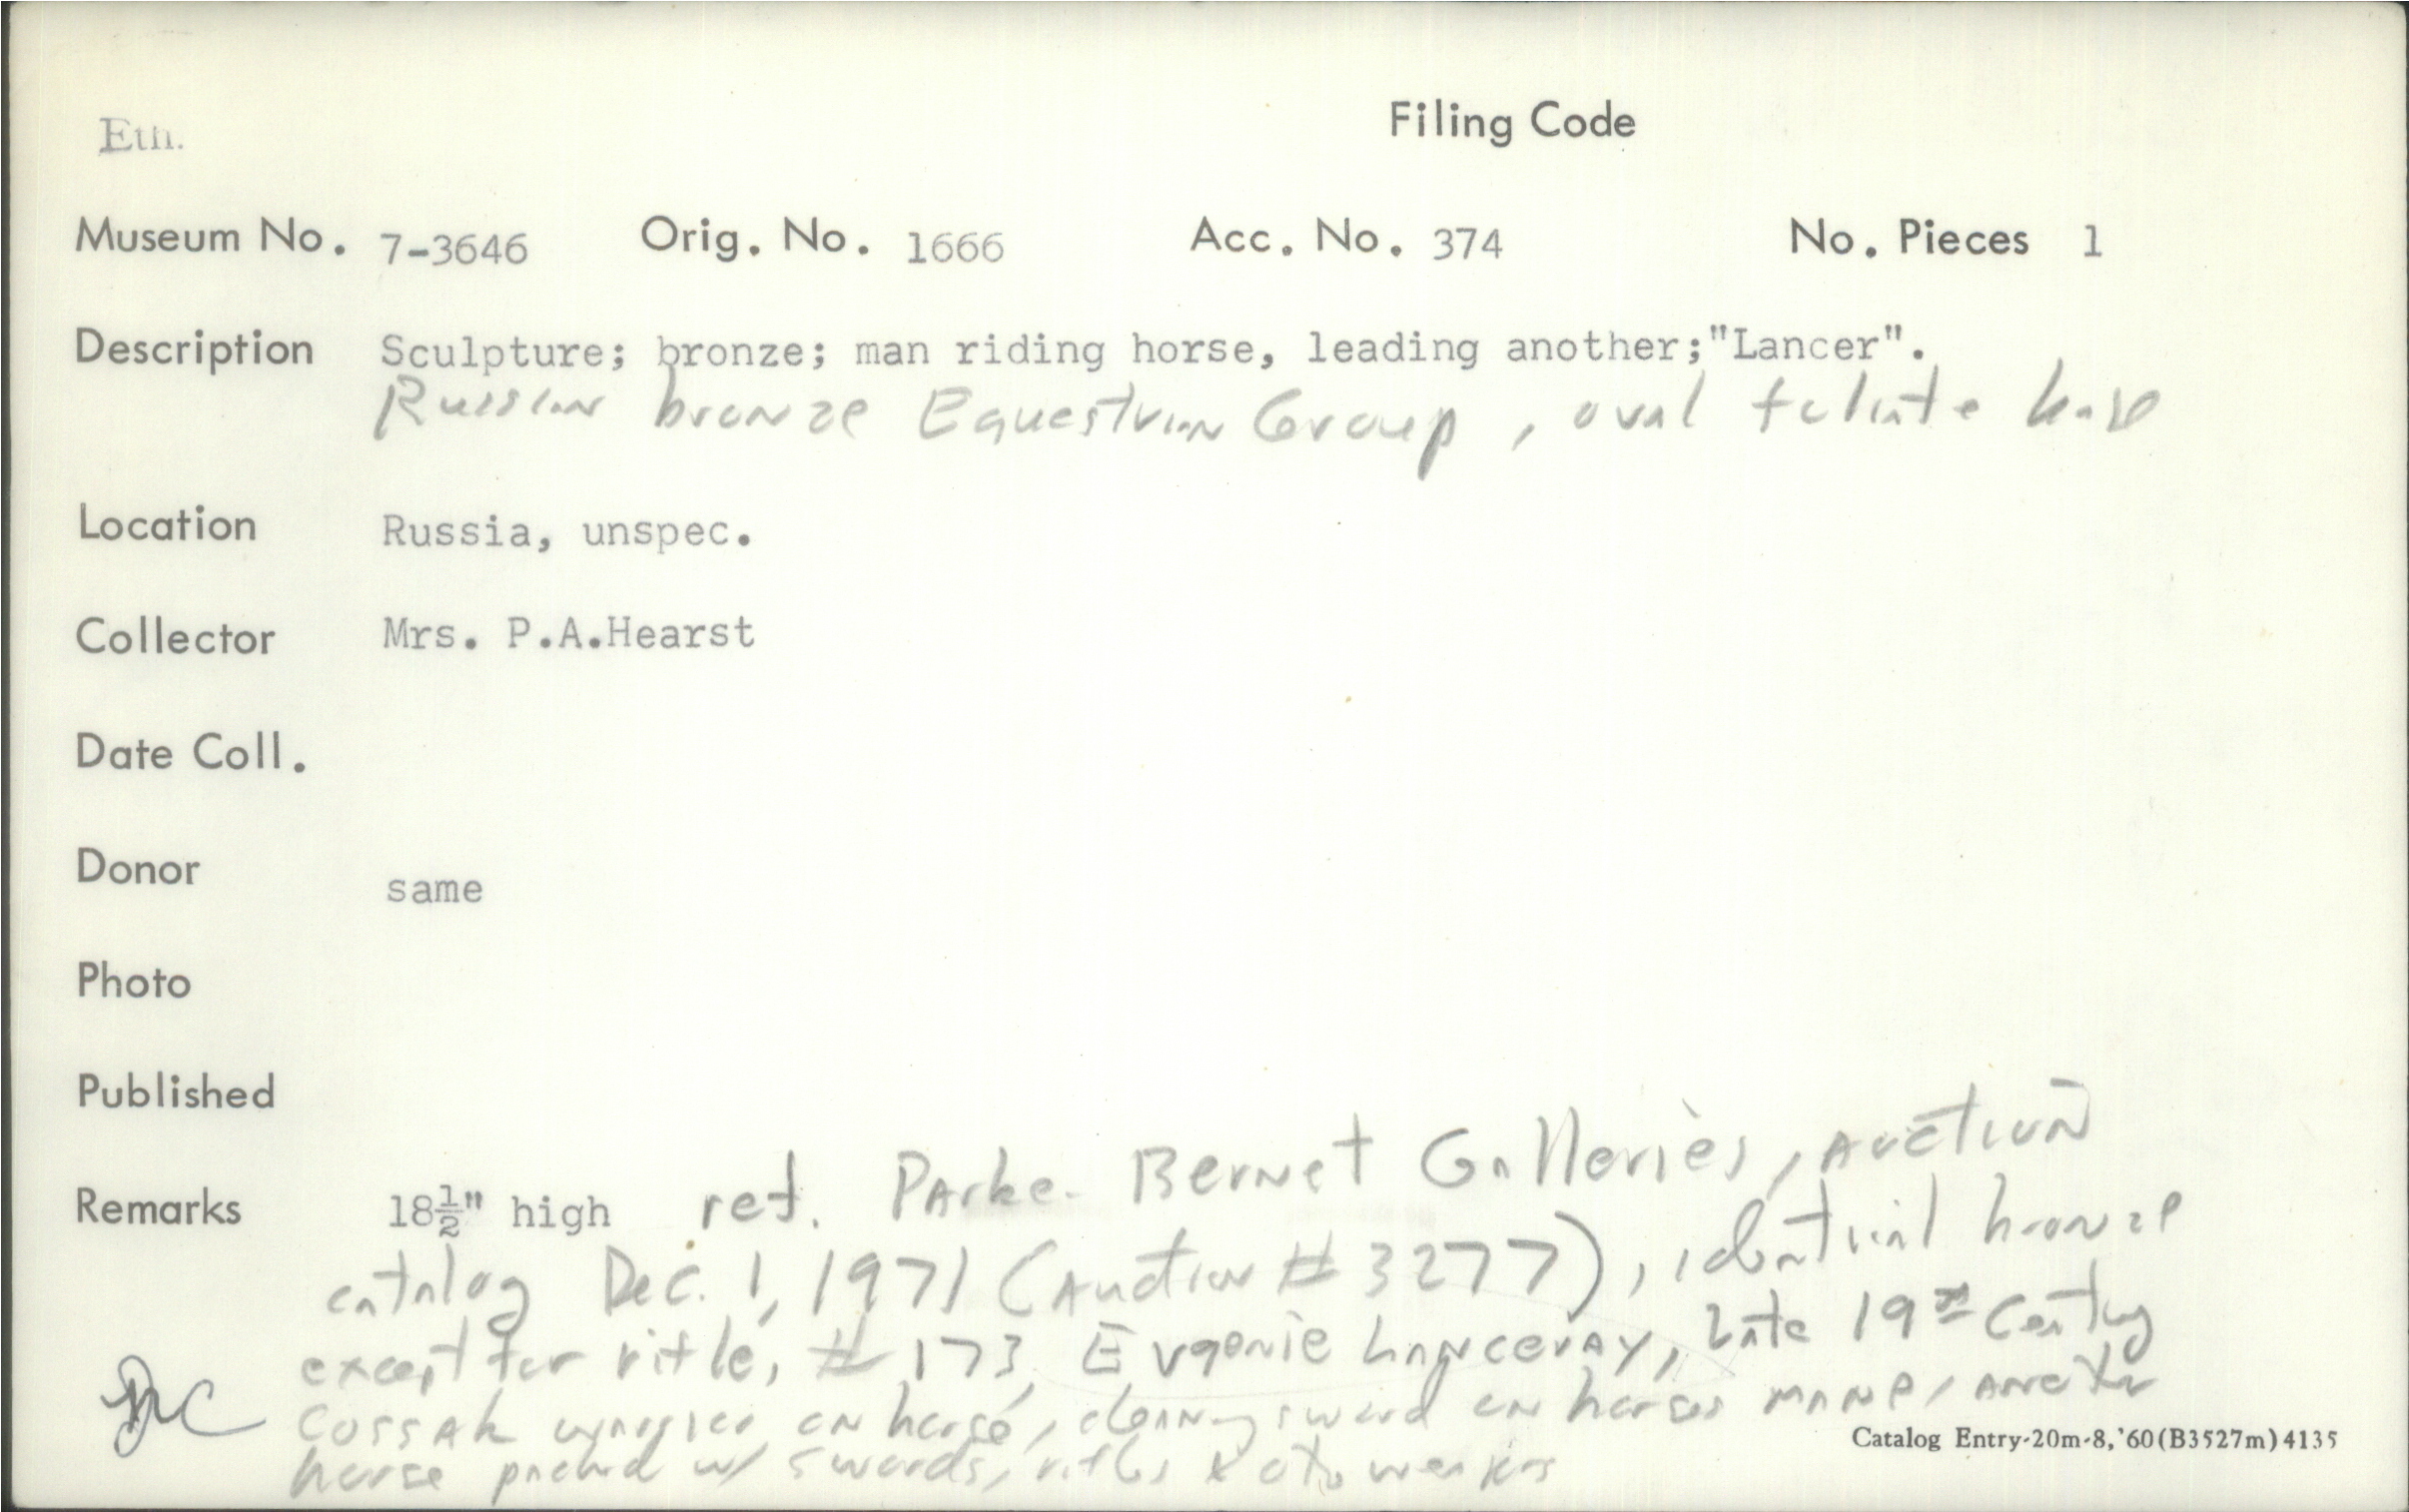 Eth.
Filing Code
Museum No. 7-3646 Orig. No. 1666 Acc. No. 374 No. Pieces 1
Description Sculpture; bronze; man riding horse, leading another;"Lancer".
Russian bronze Equestrian Group, oval foliate base
Location Russia, unspec.
Collector Mrs. P.A.Hearst
Date Coll.
Donor same
Photo
Published
Remarks 18½" high ref. Parke-Bernet Galleries, auction
catalog Dec. 1, 1971 (Auction #3277), identical bronze
except for rifle, #173, Evgenie Lanceray, late 19th Century
Cossak warrior on horse, cleaning sword on horses mane, another
horse packed w/ swords, rifles & other weapons
Catalog Entry-20m-8,'60(B3527m)4135